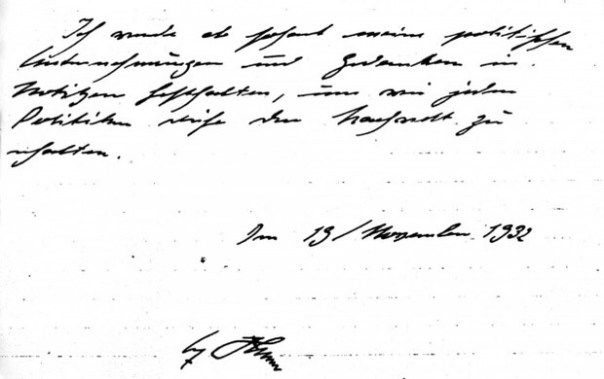 Ich werde ab sofort meine politischen
Unternehmungen und Gedanken in
Notizen festhalten, um wie jeder
Politiker diese der Nachwelt zu
erhalten.
Im 19/November 1932